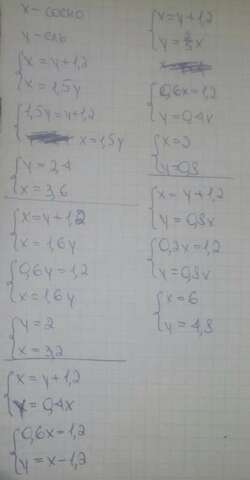 x - сосна
y - ель
{x = y + 1,2
{x = 1,5y
{1,5y = y + 1,2
{x = 1,5y
{y = 2,4
{x = 3,6
{x = y + 1,2
{x = 1,6y
{0,6y = 1,2
{x = 1,6y
{y = 2
{x = 3,2
{x = y + 1,2
{y = 0,4x
{0,6x = 1,2
{y = x - 1,2
{x = y + 1,2
{y = 2/5x
{0,6x = 1,2
{y = 0,4x
{x = 2
{y = 0,8
{x = y + 1,2
{y = 0,8x
{0,2x = 1,2
{y = 0,8x
{x = 6
{y = 4,8